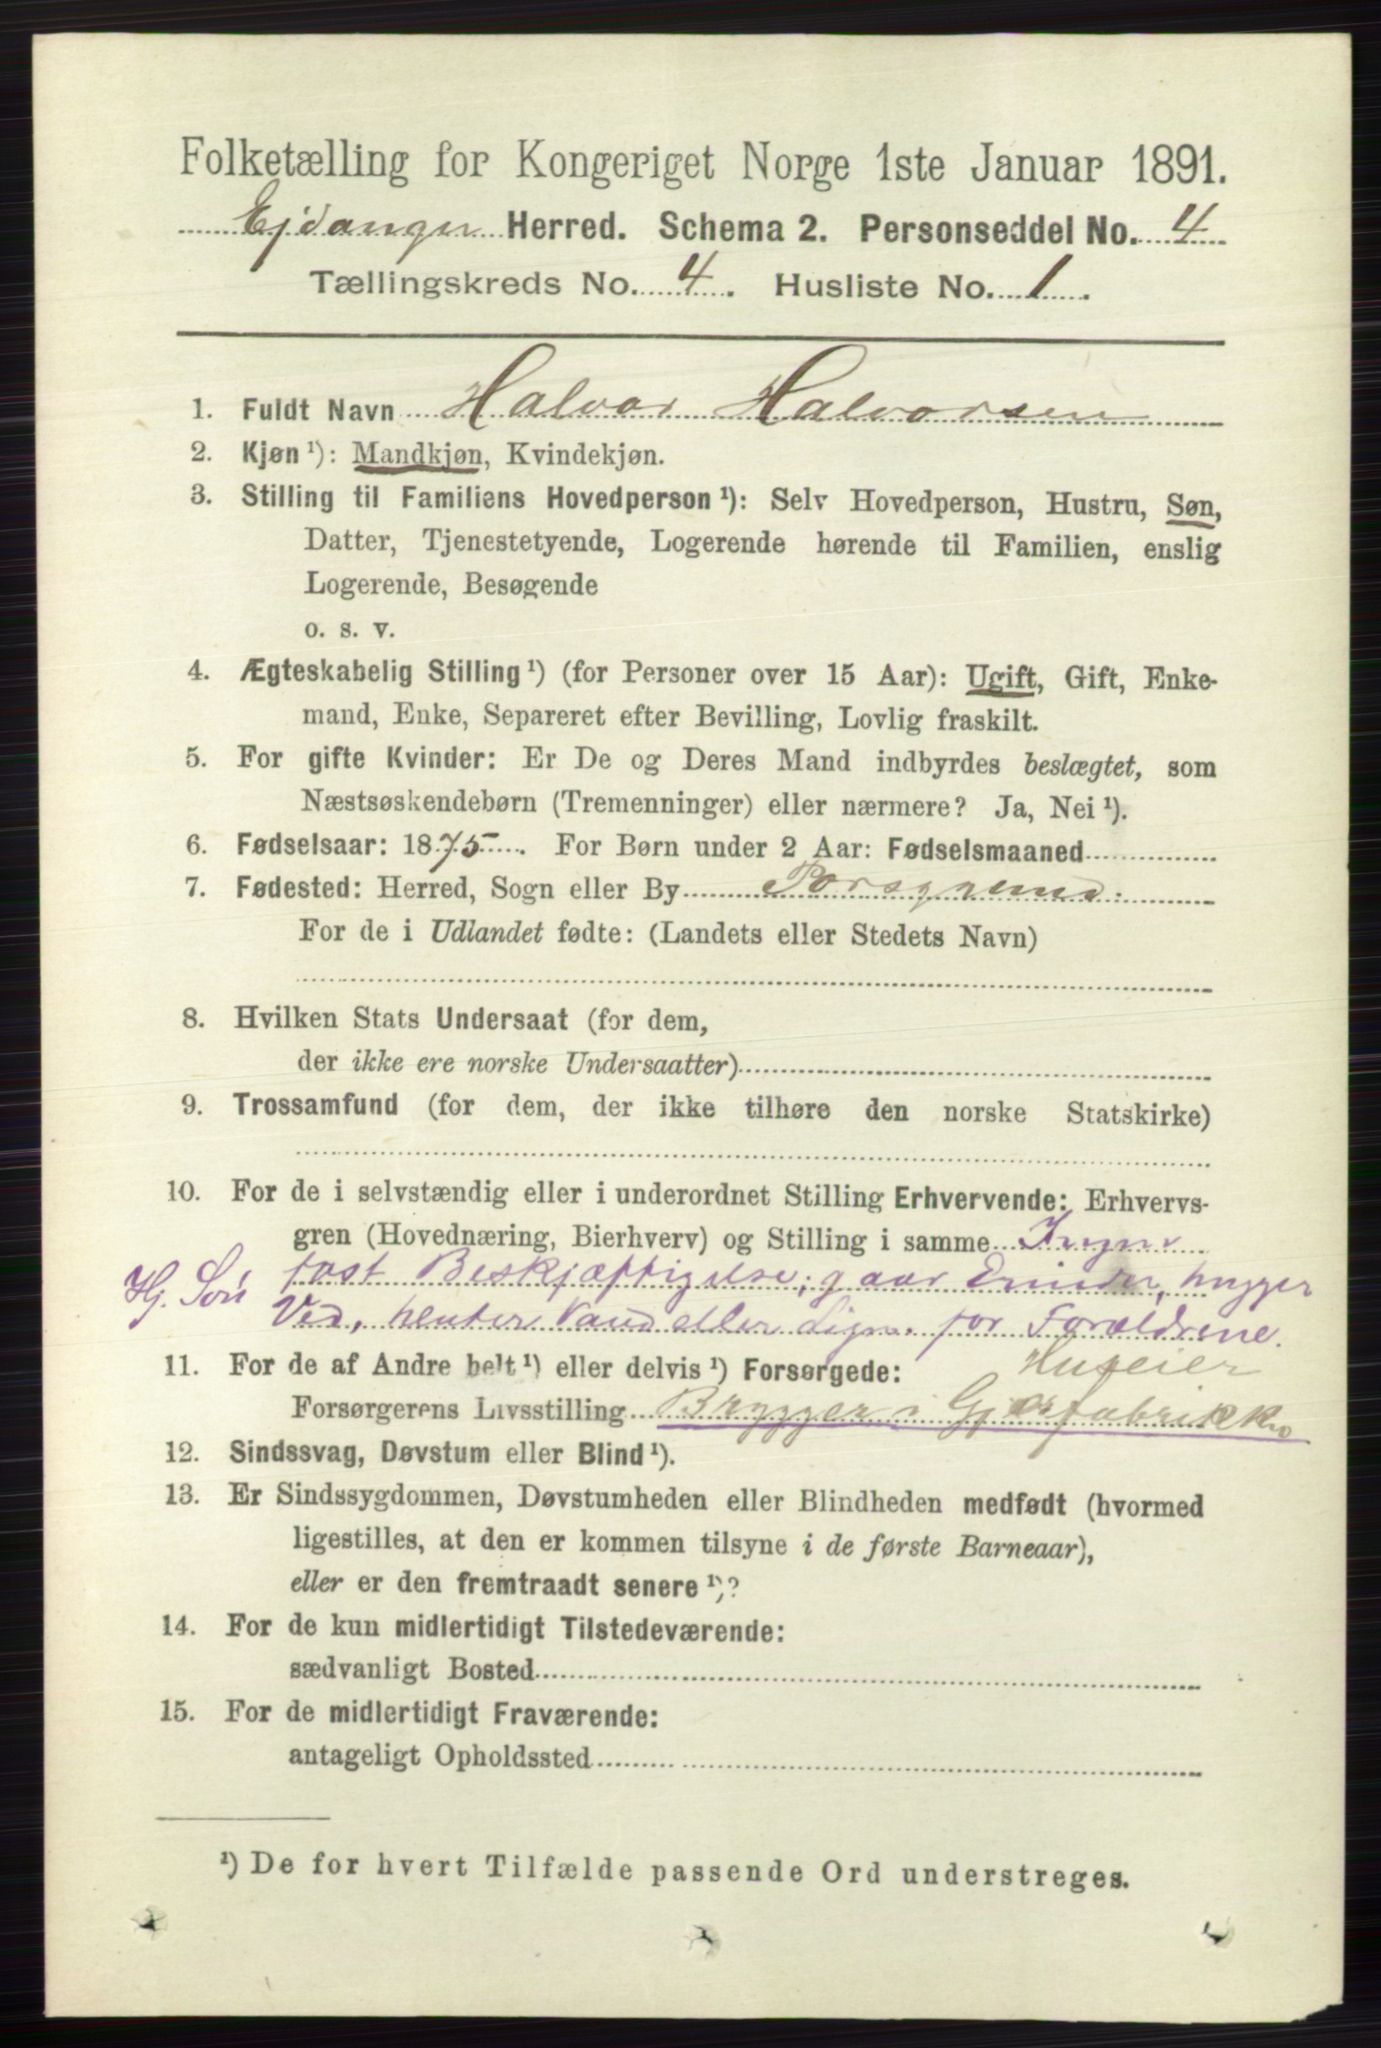 Folketælling for Kongeriget Norge 1ste Januar 1891.
Ejdanger Herred. Schema 2. Personseddel No. 4
Tællingskreds No. 4. Husliste No. 1.
1. Fuldt Navn Halvor Halvorsen
2. Kjøn¹): Mandkjøn, Kvindekjøn.
3. Stilling til Familiens Hovedperson¹): Selv Hovedperson, Hustru, Søn,
Datter, Tjenestetyende, Logerende hørende til Familien, enslig
Logerende, Besøgende
o. s. v.
4. Ægteskabelig Stilling¹) (for Personer over 15 Aar): Ugift, Gift, Enke-
mand, Enke, Separeret efter Bevilling, Lovlig fraskilt.
5. For gifte Kvinder: Er De og Deres Mand indbyrdes beslægtet, som
Næstsøskendebørn (Tremenninger) eller nærmere? Ja, Nei¹).
6. Fødselsaar: 1875. For Børn under 2 Aar: Fødselsmaaned
7. Fødested: Herred, Sogn eller By Porsgrund.
For de i Udlandet fødte: (Landets eller Stedets Navn)
8. Hvilken Stats Undersaat (for dem,
der ikke ere norske Undersaatter)
9. Trossamfund (for dem, der ikke tilhøre den norske Statskirke)
10. For de i selvstændig eller i underordnet Stilling Erhvervende: Erhvervs-
gren (Hovednæring, Bierhverv) og Stilling i samme Ingen
Hj. Søn fast Beskjæftigelse; gaar Erinder, hugger
Ved, henter Vand eller Lign. for Forældrene.
11. For de af Andre helt¹) eller delvis¹) Forsørgede: Huseier
Forsørgerens Livsstilling Brygger i Gjærfabrikke
12. Sindssvag, Døvstum eller Blind¹).
13. Er Sindssygdommen, Døvstumheden eller Blindheden medfødt (hvormed
ligestilles, at den er kommen tilsyne i de første Barneaar),
eller er den fremtraadt senere¹)?
14. For de kun midlertidigt Tilstedeværende:
sædvanligt Bosted
15. For de midlertidigt Fraværende:
antageligt Opholdssted
¹) De for hvert Tilfælde passende Ord understreges.